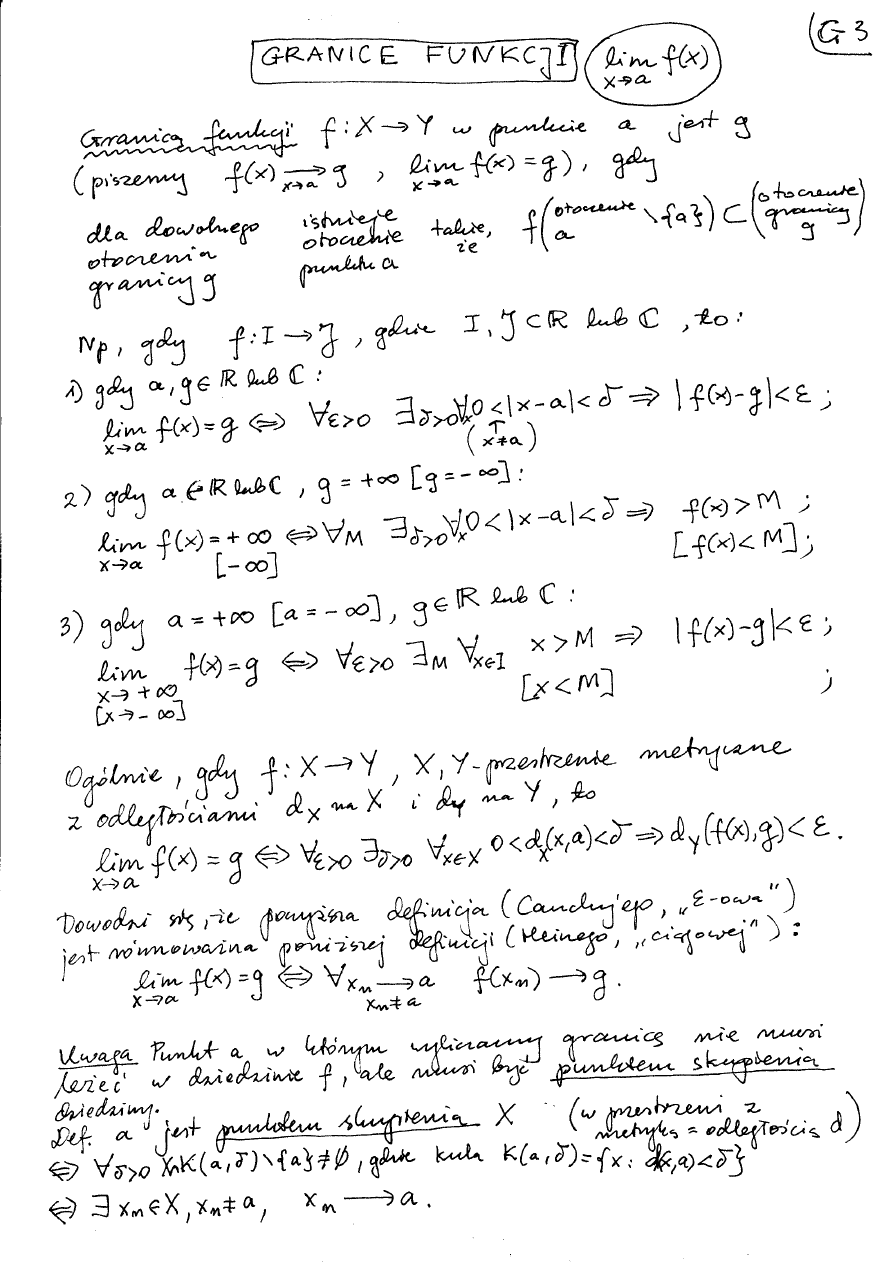 G3
GRANICE FUNKCJI lim f(x) x→a
Granicą funkcji f: X → Y w punkcie a jest g
(piszemy f(x) ⟶ g x→a , lim f(x) = g x→a ), gdy
dla dowolnego otoczenia granicy g istnieje otoczenie punktu a takie, że f(otoczenie a \ {a}) ⊂ (otoczenie granicy g)
Np, gdy f: I → J, gdzie I, J ⊂ ℝ lub ℂ, to:
1) gdy a, g ∈ ℝ lub ℂ:
lim f(x) = g ⇔ ∀ε>0 ∃δ>0 ∀x 0<|x-a|<δ ⇒ |f(x)-g|<ε ;
x→a (↑ x≠a)
2) gdy a ∈ ℝ lub ℂ, g = +∞ [g = -∞]:
lim f(x) = +∞ ⇔ ∀M ∃δ>0 ∀x 0<|x-a|<δ ⇒ f(x) > M ;
x→a [-∞] [f(x) < M] ;
3) gdy a = +∞ [a = -∞], g ∈ ℝ lub ℂ:
lim f(x) = g ⇔ ∀ε>0 ∃M ∀x∈I x > M ⇒ |f(x)-g|<ε ;
x→+∞ [x < M] ;
[x→-∞]
Ogólnie, gdy f: X → Y, X, Y - przestrzenie metryczne
z odległościami dX na X i dY na Y, to
lim f(x) = g ⇔ ∀ε>0 ∃δ>0 ∀x∈X 0<dX(x,a)<δ ⇒ dY(f(x),g)<ε.
x→a
Dowodzi się, że powyższa definicja (Cauchy'ego, „ε-owa")
jest równoważna poniższej definicji (Heinego, „ciągowej"):
lim f(x) = g ⇔ ∀xn ⟶ a f(xn) ⟶ g.
x→a xn≠a
Uwaga Punkt a w którym wyliczamy granicę nie musi
leżeć w dziedzinie f, ale musi być punktem skupienia
dziedziny.
Def. a jest punktem skupienia X (w przestrzeni z metryką = odległością d)
⇔ ∀δ>0 X∩K(a,δ)\{a}≠∅, gdzie kula K(a,δ)={x: d(x,a)<δ}
⇔ ∃ xn∈X, xn≠a, xn ⟶ a.